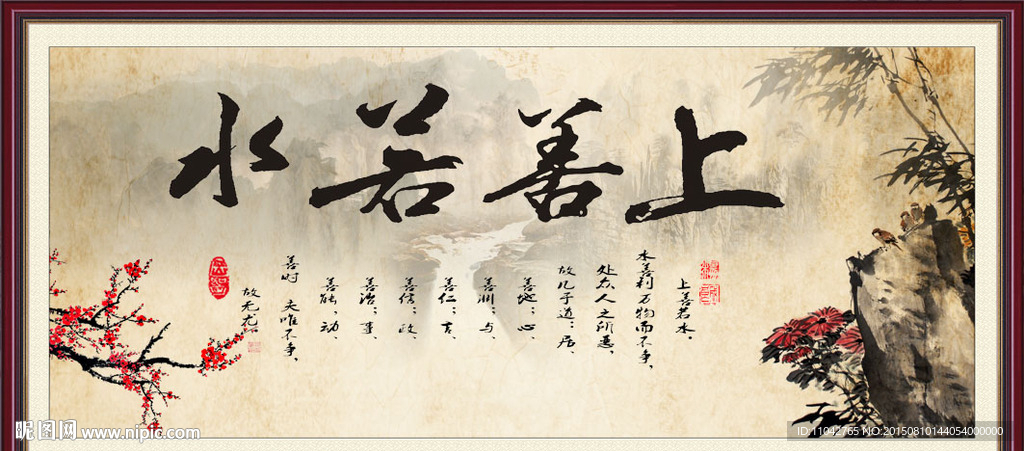 上善若水
上善若水。
水善利万物而不争,
处众人之所恶,
故几于道:居、
善地;心、
善渊;与、
善仁;言、
善信;政、
善治;事、
善能;动、
善时 夫唯不争,
故无尤。
昵图网 www.nipic.com
ID:11042765 NO:20150810144054000000